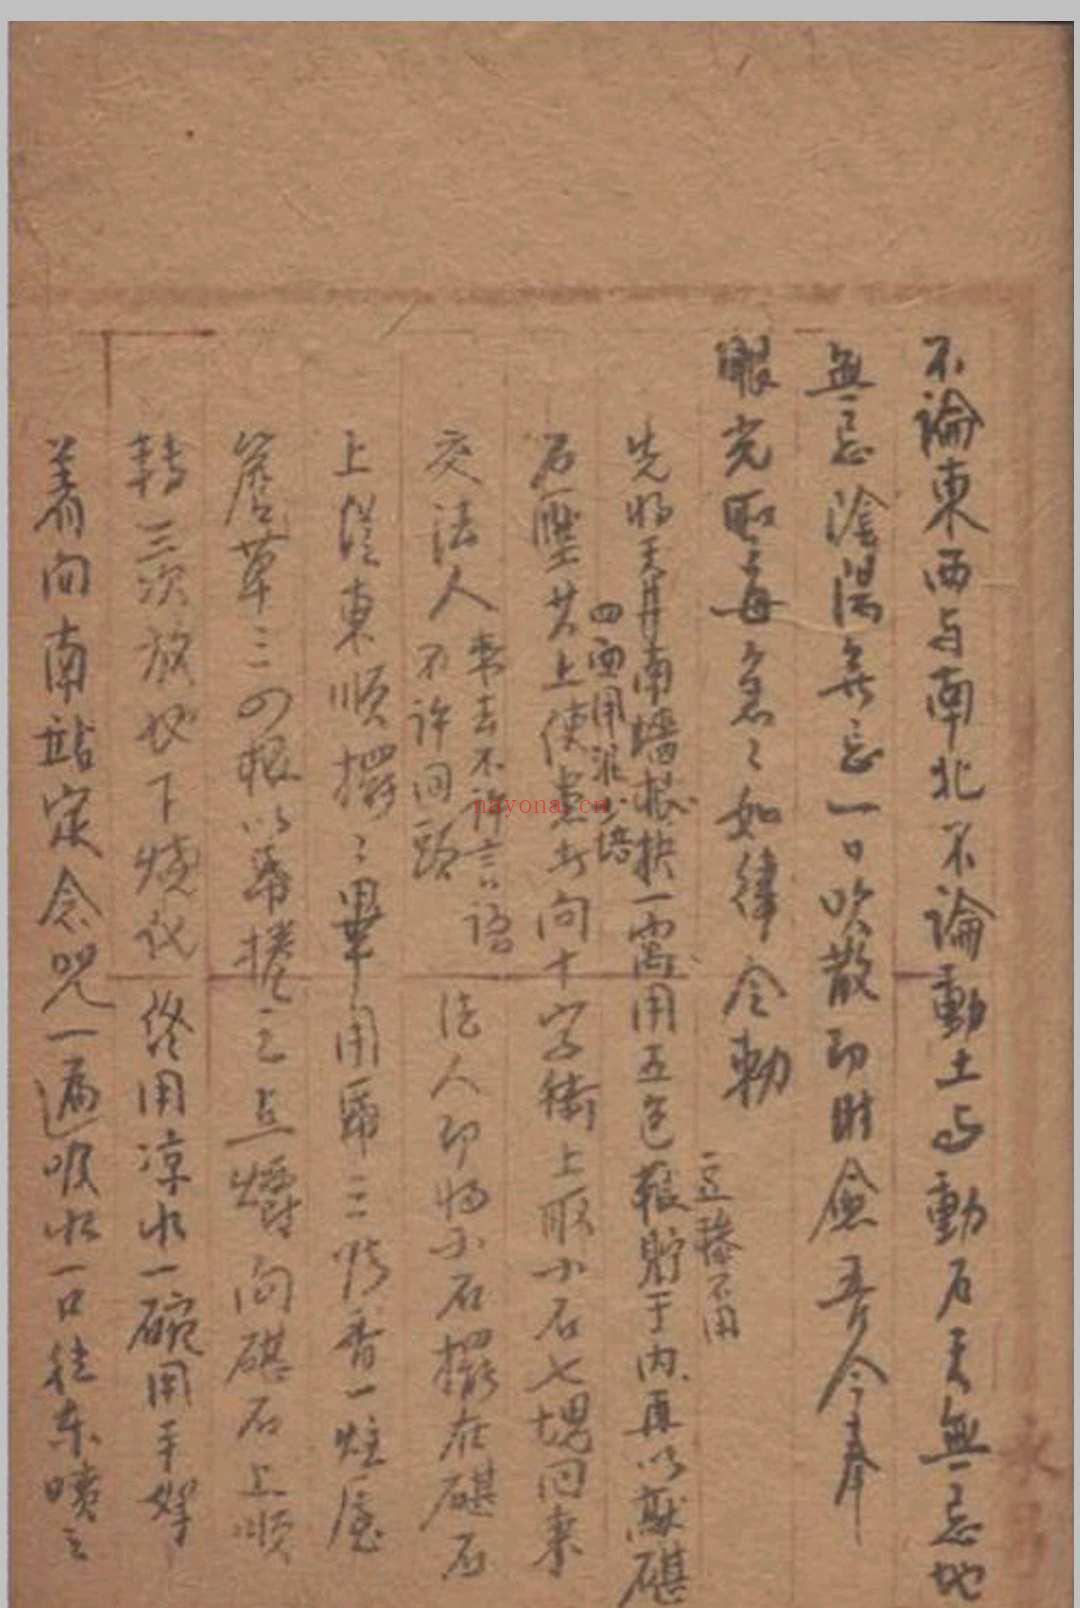 不論東西与南北不論動土与動石天無忌地
無忌陰陽無忌一口吹散即時僉吾今奉
眼光聖母急〻如律令勅
先將天井南墻根挖一窩用五色粮貯于内再以𤞤碪
立
不用
四面用泥培
石壓其上使患者向十字街上取小石七塊回来
交法人
来去不許言語
不許回頭
法人即将小石擺在碪石
上從東順擺〻畢用帋三張香一炷屋
簷草三四根以帋捲之点燃向碪石上順
轉三次放地下燒化 終用凉水一碗用手
着向南站定念咒一遍吸水一口往东噴之
nayona.cn